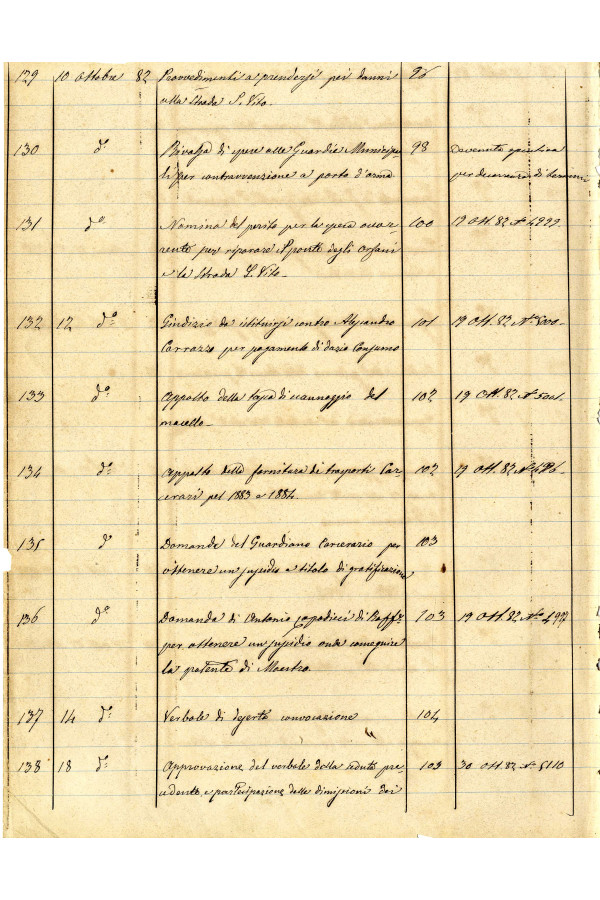 129 10 Ottobre 82 Provvedimenti a prendersi pei danni 96
alla Strada S. Vito.
130 d° Rivalsa di spese alle Guardie Municipa- 98 Devenuta esecutiva
li per contravvenzione a porto d'arma per decorrenza di termini
131 d° Nomina del perito per le opere occor- 100 19 Ott. 82 N° 4999.
rente per riparare il ponte degli Orfani
e la Strada S. Vito.
132 12 d° Giudizio da istituirsi contro Alessandro 101 19 Ott. 82 N° 5000.
Carrazzo per pagamento di dazio Consumo
133 d° Appalto della tassa di scannaggio del 102 19 Ott. 82 N° 5001.
macello.
134 d° Appalto della fornitura dei trasporti Car- 102 19 Ott. 82 N°
cerarî pel 1883 e 1884.
135 d° Domanda del Guardiano Carcerario per 103
ottenere un sussidio a titolo di gratificazione
136 d° Domanda di Antonio Capodieci di Raff.e 103 19 Ott. 82 N° 4997
per ottenere un sussidio onde conseguire
la patente di Maestro.
137 14 d° Verbale di deserta convocazione 104
138 18 d° Approvazione del verbale della seduta pre- 103 30 Ott. 82 N° 5110
cedente, e partecipazione delle dimissioni dei